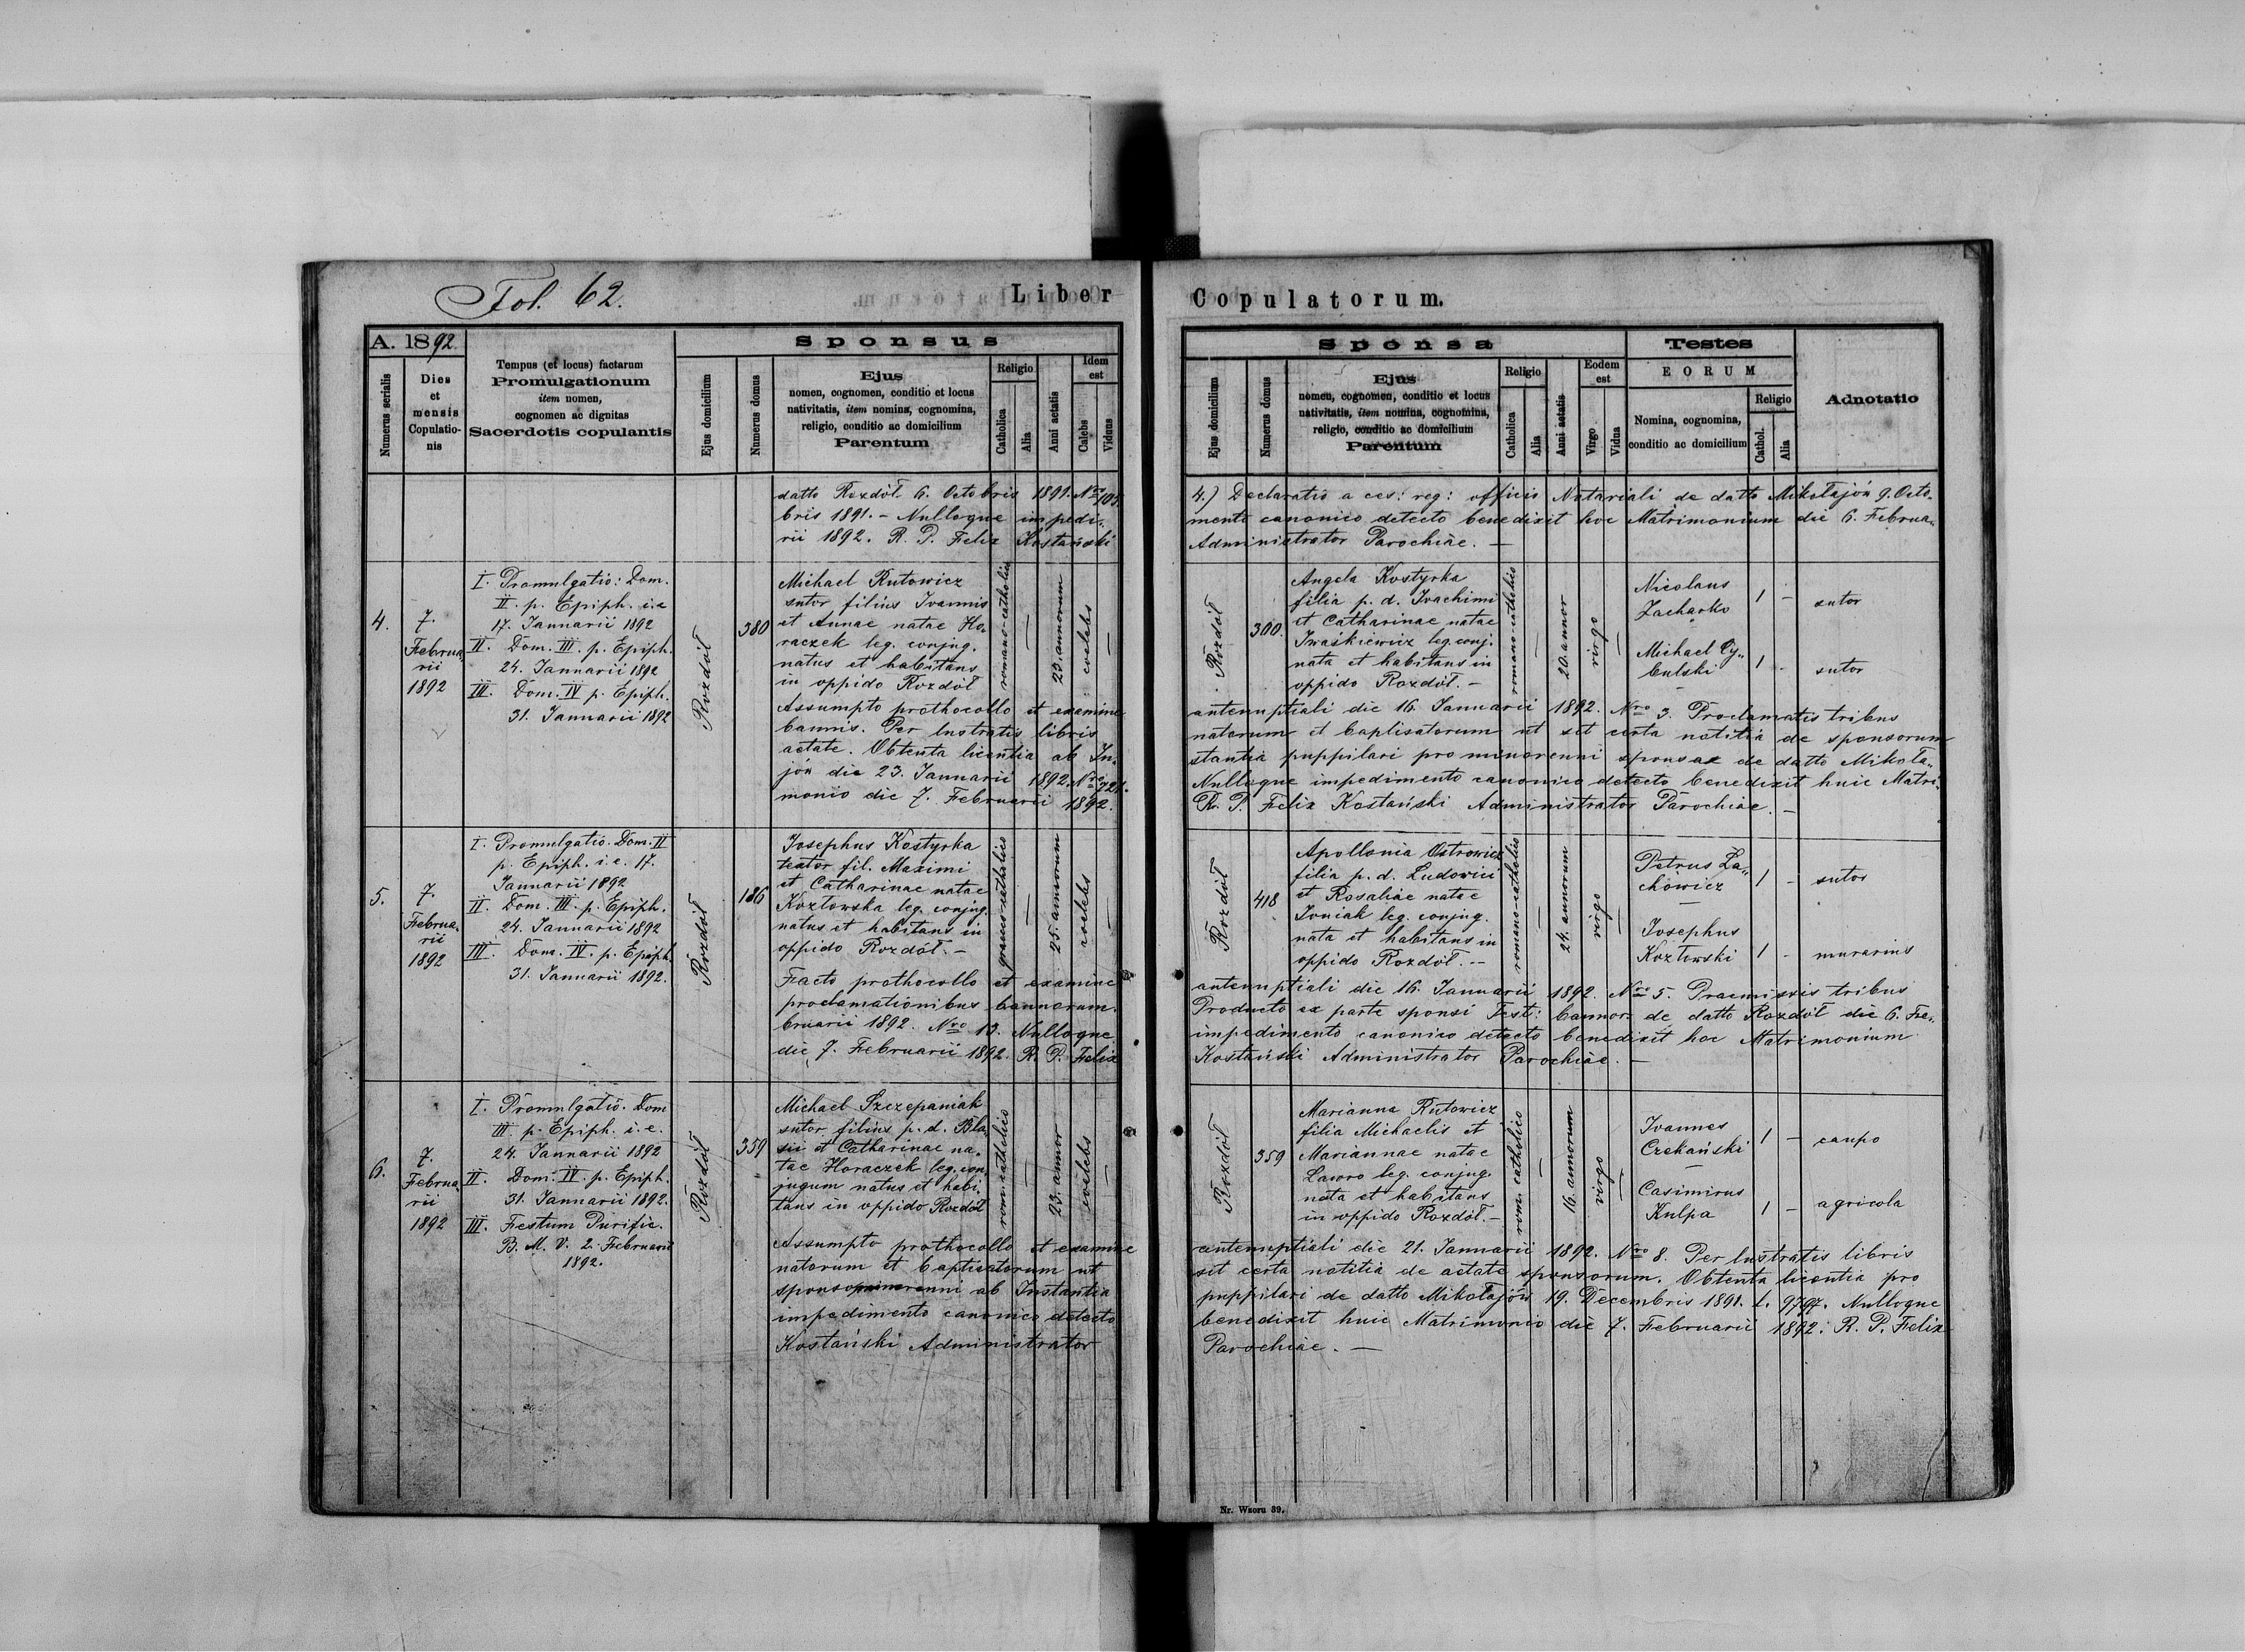 Fol. 62.
Liber
A. 1892
Numerus serialis
Dies
et
mensis
Copulatio-
nis
Tempus (et locus) factarum
Promulgationum
item nomen,
cognomen ac dignitas
Sacerdotis copulantis
Sponsus
Ejus domicilium
Numerus domus
Ejus
nomen, cognomen, conditio et locus
nativitatis, item nomina, cognomina,
religio, conditio ac domicilium
Parentum
Religio
Catholica
Alia
Anni aetatis
Idem
est
Calebs
Viduus
datto Rozdół 6. Octobris 1891. Nro 105.
bris 1891. - Nulloque impedi-
rii 1892. R. P. Felix Kostański
4.
7.
Februa-
rii
1892
I. Promulgatio: Dom.
II. p. Epiph. i.e
17. Januarii 1892
II. Dom. III. p. Epiph.
24. Januarii 1892
III. Dom. IV p. Epiph.
31. Januarii 1892
Rozdół
380
Michael Rutowicz
sutor filius Joannis
et Annae natae Ho-
raczek leg. conjug.
natus et habitans
in oppido Rozdół
romano-catholic
—
23. annorum
coelebs
—
Assumpto prothocollo et examine
bannis. Per lustratis libris
aetate. Obtenta licentia ab In-
jów die 23. Januarii 1892. Nro 721.
monio die 7. Februarii 1892.
5.
7.
Februa-
rii
1892
I. Promulgatio. Dom. II
p. Epiph. i.e. 17.
Januarii 1892
II. Dom. III. p. Epiph.
24. Januarii 1892
III. Dom. IV. p. Epiph.
31. Januarii 1892.
Rozdół
186
Josephus Kostyrka
textor fil. Maximi
et Catharinae natae
Kozłowska leg. conjug.
natus et habitans in
oppido Rozdół. -
graeco-catholico
—
25. annorum
coelebs
—
Facto prothocollo et examine
proclamationibus bannorum.
bruarii 1892. Nro 13. Nulloque
die 7. Februarii 1892. R. P. Felix
6.
7.
Februa-
rii
1892
I. Promulgatio. Dom
III. p. Epiph. i.e.
24. Januarii 1892
II. Dom. IV. p. Epiph.
31. Januarii 1892.
III. Festum Purific.
B. M. V. 2. Februarii
1892.
Rozdół
359
Michael Szczepaniak
sutor filius p. d. Bla-
sii et Catharinae na-
tae Horaczek leg. con-
jugum natus et habi-
tans in oppido Rozdół
rom. catholico
—
23. annor
coelebs
—
Assumpto prothocollo et examine
natorum et baptisatorum ut
sponso minorenni ab Instantia
impedimento canonico detecto
Kostański Administrator
Copulatorum.
Sponsa
Ejus domicilium
Numerus domus
Ejus
nomen, cognomen, conditio et locus
nativitatis, item nomina, cognomina,
religio, conditio ac domicilium
Parentum
Religio
Catholica
Alia
Anni aetatis
Eodem
est
Virgo
Vidua
Testes
EORUM
Nomina, cognomina,
conditio ac domicilium
Religio
Cathol.
Alia
Adnotatio
4.) Declaratio a ces: reg: officio Notariali de datto Mikołajów 9. Octo-
mento canonico detecto benedixit hoc Matrimonium die 6. Februa-
Administrator Parochiae. —
Rozdół
300.
Angela Kostyrka
filia p. d. Joachimi
et Catharinae natae
Iwaśkiewicz leg. conj.
nata et habitans in
oppido Rozdół. -
romano-catholico
—
20. annor
virgo
—
Nicolaus
Zacharko
1 - sutor
Michael Cy-
bulski
1 - sutor
antenuptiali die 16. Januarii 1892. Nro 3. Proclamatis tribus
natorum et baptisatorum ut sit certa notitia de sponsorum
stantia puppilari pro minorenni sponsae de datto Mikoła-
Nulloque impedimento canonico detecto benedixit huic Matri-
R. P. Felix Kostański Administrator Parochiae. -
Rozdół
418
Apollonia Ostrowicz
filia p. d. Ludovici
et Rosaliae natae
Joniak leg. conjug.
nata et habitans in
oppido Rozdół. -
romano-catholico
—
24. annorum
virgo
—
Petrus Za-
chowicz
1 - sutor
Josephus
Kozłowski
1 - murarius
antenuptiali die 16. Januarii 1892. Nro 5. Praemissis tribus
Producto ex parte sponsi Test: bannor: de datto Rozdół die 6. Fe-
impedimento canonico detecto benedixit hoc Matrimonium
Kostański Administrator Parochiae. —
Rozdół
359
Marianna Rutowicz
filia Michaelis et
Mariannae natae
Laworo leg. conjug.
nata et habitans
in oppido Rozdół. -
rom. catholico
—
16. annorum
virgo
—
Joannes
Czekański
1 - caupo
Casimirus
Kulpa
1 - agricola
antenuptiali die 21. Januarii 1892. Nro 8. Per lustratis libris
sit certa notitia de aetate sponsorum. Obtenta licentia pro
puppilari de datto Mikołajów 19. Decembris 1891. L. 9797. Nulloque
benedixit huic Matrimonio die 7. Februarii 1892. R. P. Felix
Parochiae. —
Nr. Wzoru 39.